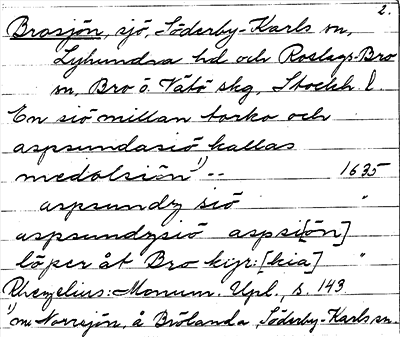 2.
Brosjön, sjö, Söderby-Karls sn,
Lyhundra hd och Roslags-Bro
sn, Bro o. Vätö skg, Stockh. l.
En siö millan torko och
aspsundasiö kallas
medalsiön 1) -- 1635
aspsundz siö "
aspsundzsiö aspsi[ön]
löper åt Bro kijr:[kia] "
Rhezelius: Monum. Upl., s. 143
1) nu Norrsjön, å Brölanda, Söderby-Karls sn.